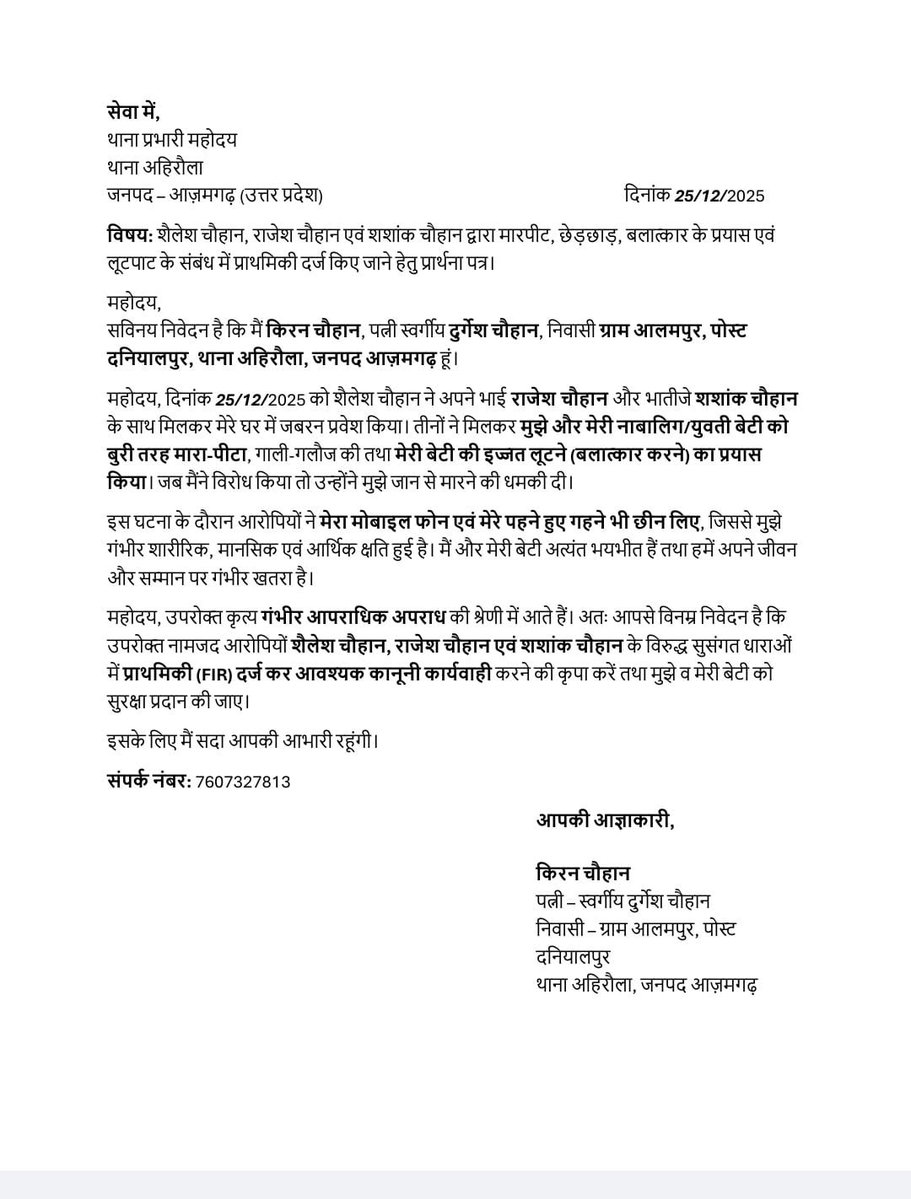 सेवा में,
थाना प्रभारी महोदय
थाना अहिरौला
जनपद – आज़मगढ़ (उत्तर प्रदेश) दिनांक 25/12/2025
विषय: शैलेश चौहान, राजेश चौहान एवं शशांक चौहान द्वारा मारपीट, छेड़छाड़, बलात्कार के प्रयास एवं
लूटपाट के संबंध में प्राथमिकी दर्ज किए जाने हेतु प्रार्थना पत्र।
महोदय,
सविनय निवेदन है कि मैं किरन चौहान, पत्नी स्वर्गीय दुर्गेश चौहान, निवासी ग्राम आलमपुर, पोस्ट
दनियालपुर, थाना अहिरौला, जनपद आज़मगढ़ हूं।
महोदय, दिनांक 25/12/2025 को शैलेश चौहान ने अपने भाई राजेश चौहान और भातीजे शशांक चौहान
के साथ मिलकर मेरे घर में जबरन प्रवेश किया। तीनों ने मिलकर मुझे और मेरी नाबालिग/युवती बेटी को
बुरी तरह मारा-पीटा, गाली-गलौज की तथा मेरी बेटी की इज्जत लूटने (बलात्कार करने) का प्रयास
किया। जब मैंने विरोध किया तो उन्होंने मुझे जान से मारने की धमकी दी।
इस घटना के दौरान आरोपियों ने मेरा मोबाइल फोन एवं मेरे पहने हुए गहने भी छीन लिए, जिससे मुझे
गंभीर शारीरिक, मानसिक एवं आर्थिक क्षति हुई है। मैं और मेरी बेटी अत्यंत भयभीत हैं तथा हमें अपने जीवन
और सम्मान पर गंभीर खतरा है।
महोदय, उपरोक्त कृत्य गंभीर आपराधिक अपराध की श्रेणी में आते हैं। अतः आपसे विनम्र निवेदन है कि
उपरोक्त नामजद आरोपियों शैलेश चौहान, राजेश चौहान एवं शशांक चौहान के विरुद्ध सुसंगत धाराओं
में प्राथमिकी (FIR) दर्ज कर आवश्यक कानूनी कार्यवाही करने की कृपा करें तथा मुझे व मेरी बेटी को
सुरक्षा प्रदान की जाए।
इसके लिए मैं सदा आपकी आभारी रहूंगी।
संपर्क नंबर: 7607327813
आपकी आज्ञाकारी,
किरन चौहान
पत्नी – स्वर्गीय दुर्गेश चौहान
निवासी – ग्राम आलमपुर, पोस्ट
दनियालपुर
थाना अहिरौला, जनपद आज़मगढ़